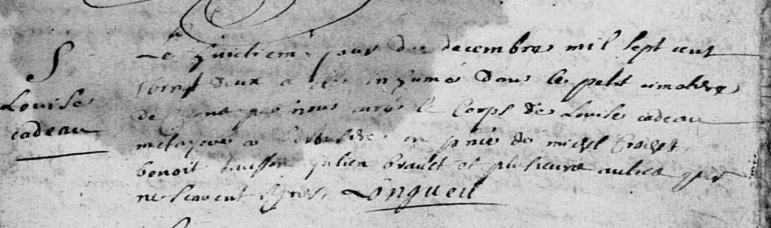 S
Louise
cadeau
Le huictieme jour de decembre mil sept cent
vingt deux a esté inhumé dans le petit cimetiere
de par nous curé le Corps de Louise cadeau
metayere a en pnce de michel
benoit julien brault et plusieurs autres qui
ne scavent signer Longueil